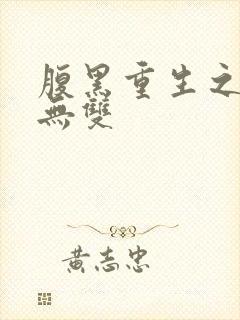 腹黑重生之
無雙
黃志忠